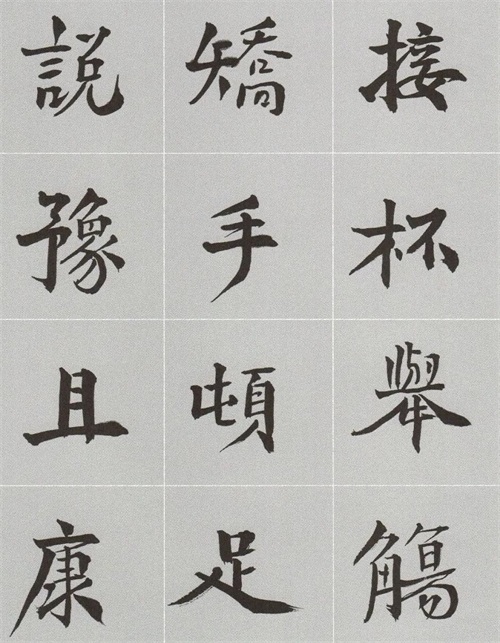 接杯舉觴
矯手頓足
說豫且康